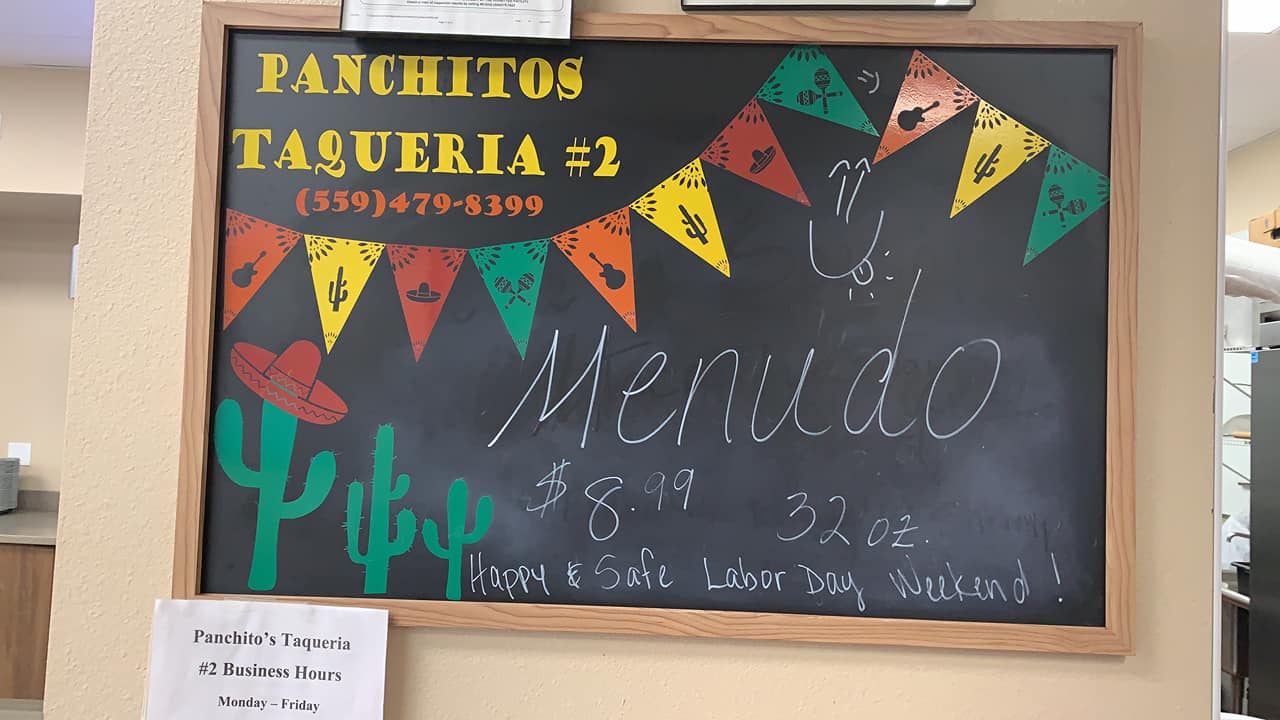 PANCHITOS
TAQUERIA #2
(559)479-8399
Menudo
$8.99 32 oz.
Happy & Safe Labor Day Weekend!
Panchito's Taqueria
#2 Business Hours
Monday – Friday